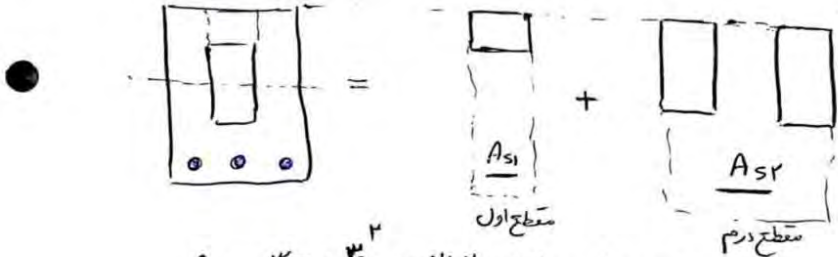 = +
As1
As۲
مقطع اول
مقطع دوم